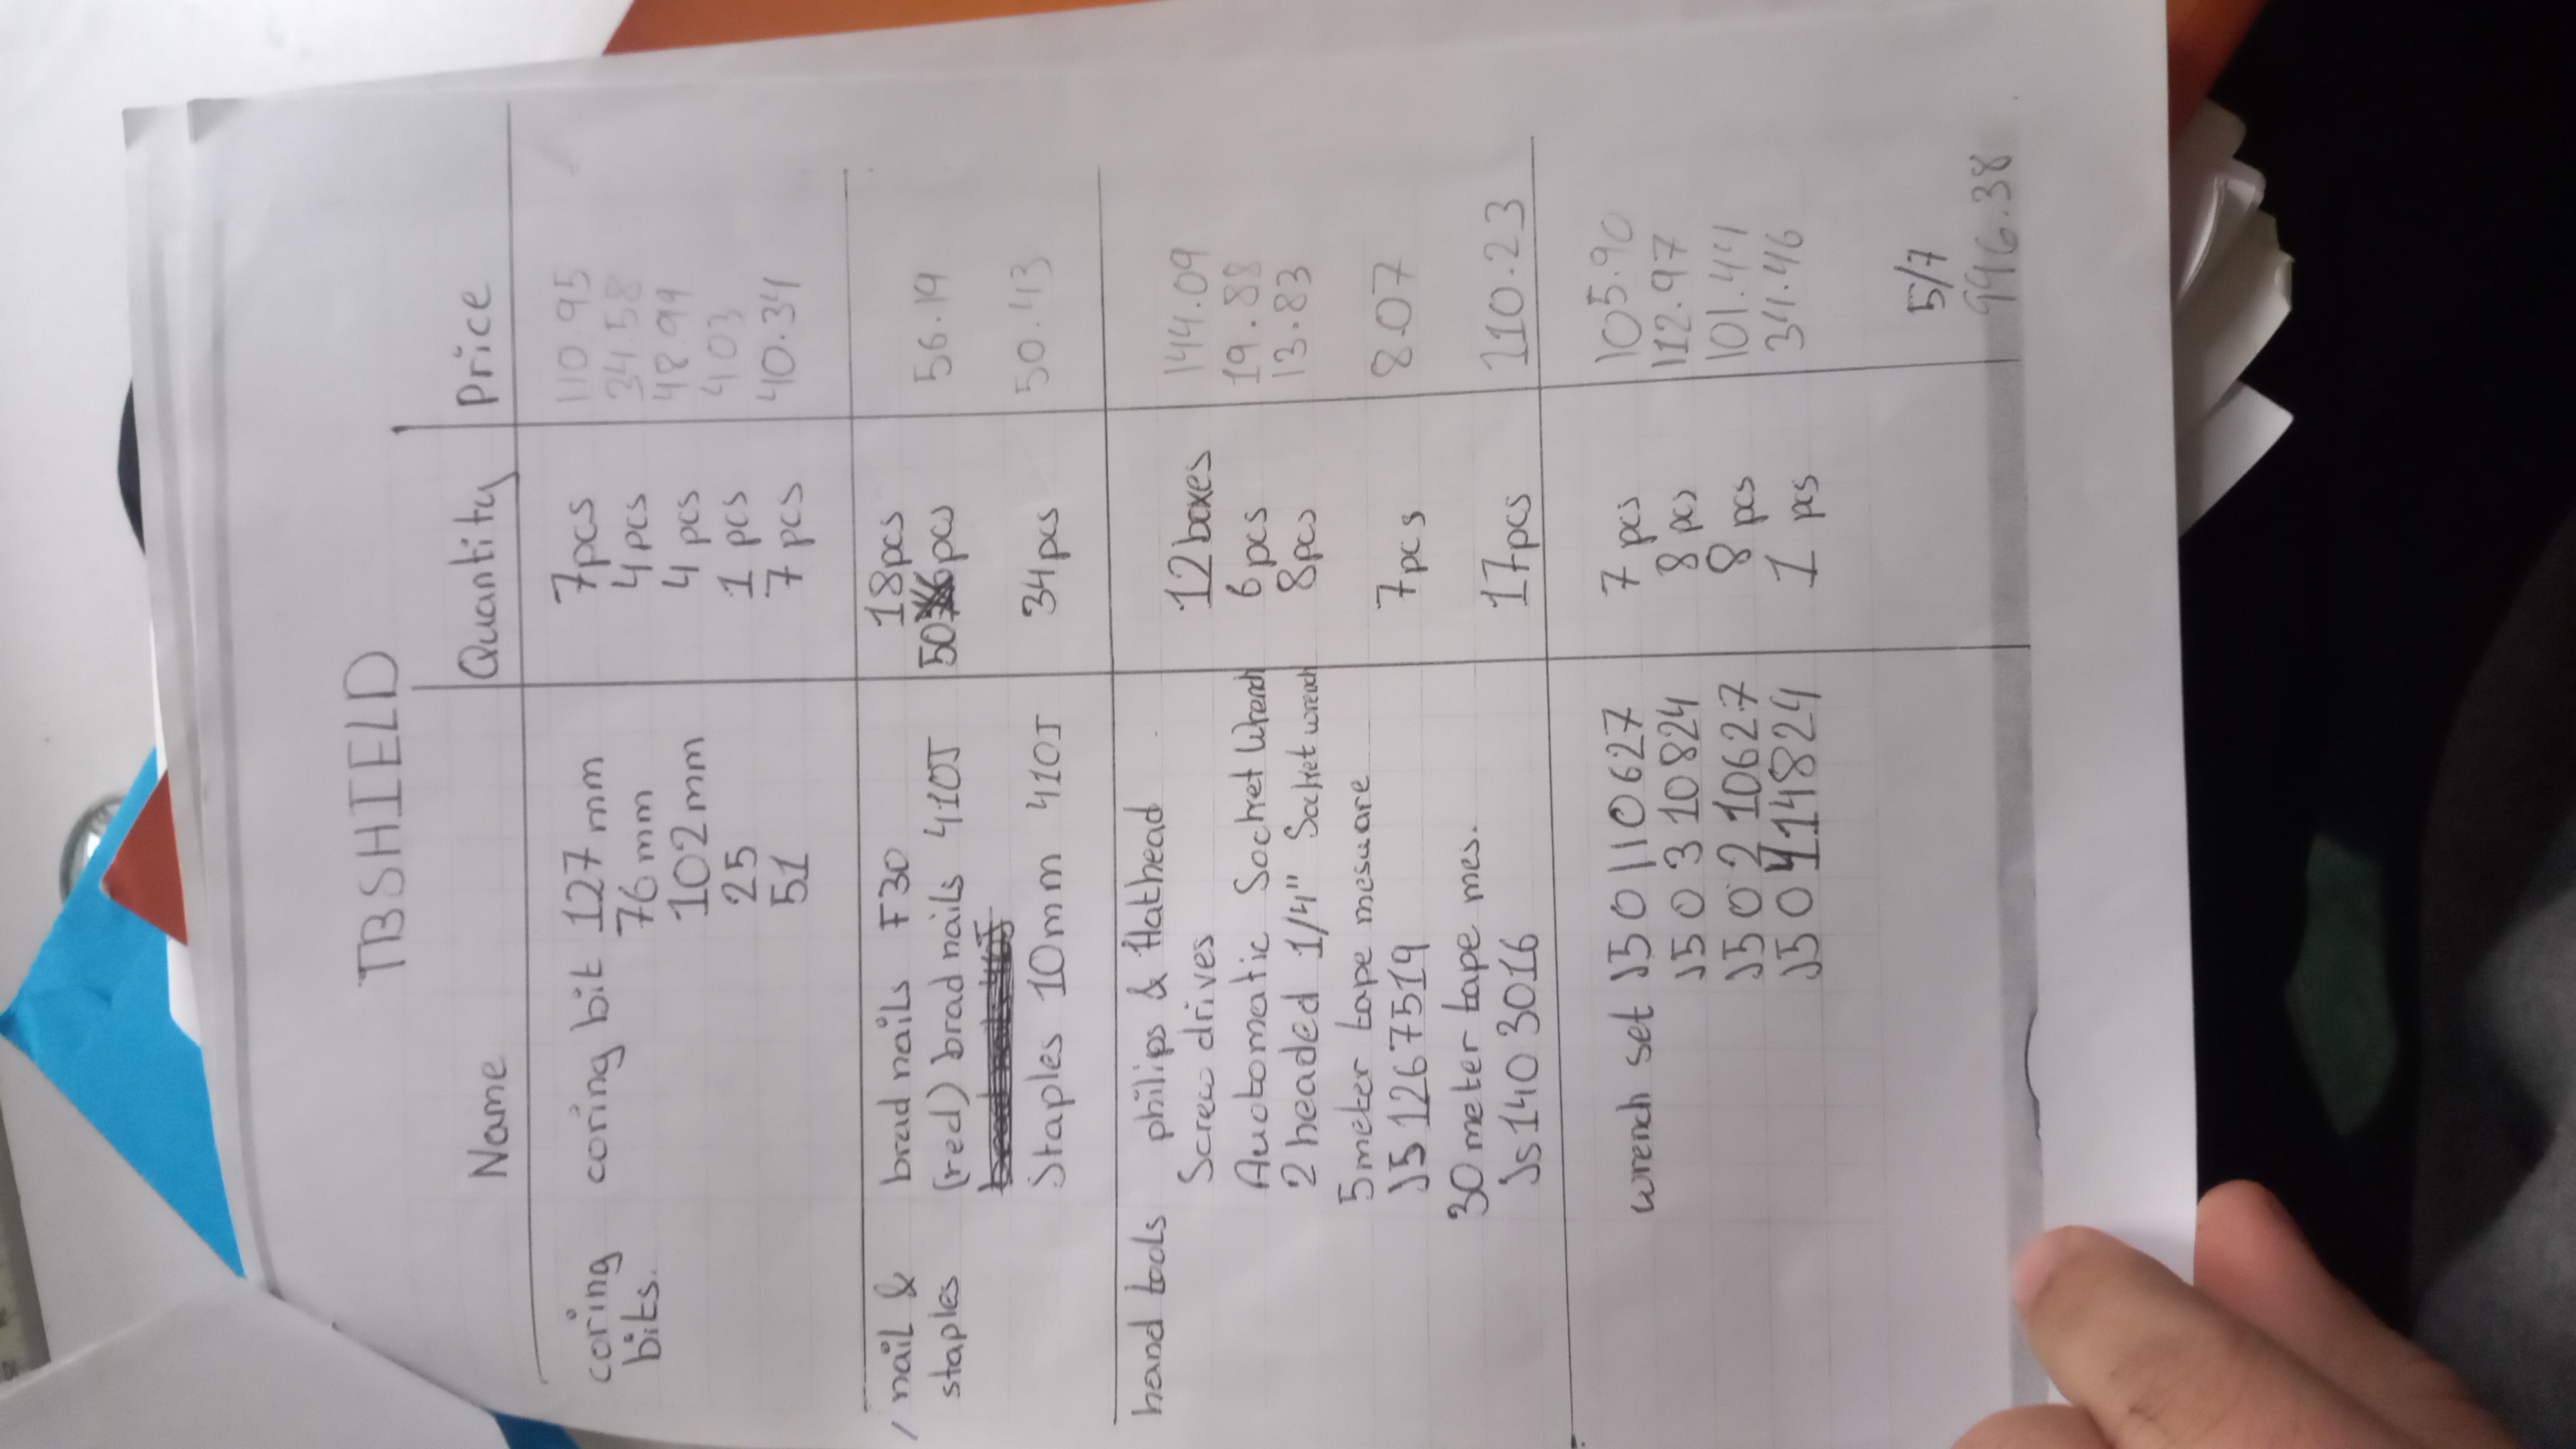 TBSHIELD
Name Quantity Price
coring bits. coring bit 127mm 7pcs 110.95
76mm 4pcs 34.58
102mm 4pcs 48.99
25 1pcs 4.03
51 7pcs 40.34
nail & staples brad nails F30 18pcs
(red) brad nails 410J 50 pcs 56.19
Staples 10mm 410J 34pcs 50.43
hand tools philips & flathead
Screw drives 12 boxes 144.09
Auotomatic Sochet Wrench 6pcs 19.88
2 headed 1/4" Socket wrench 8pcs 13.83
5 meter tape mesuare
JS 1267519 7pcs 8.07
30 meter tape mes.
Js 1403016 17pcs 110.23
wrench set JS 0110627 7pcs 105.90
JS 0310824 8pcs 112.97
JS 0210627 8pcs 101.44
JS 04114824 1pcs 34.46
5/7
996.38